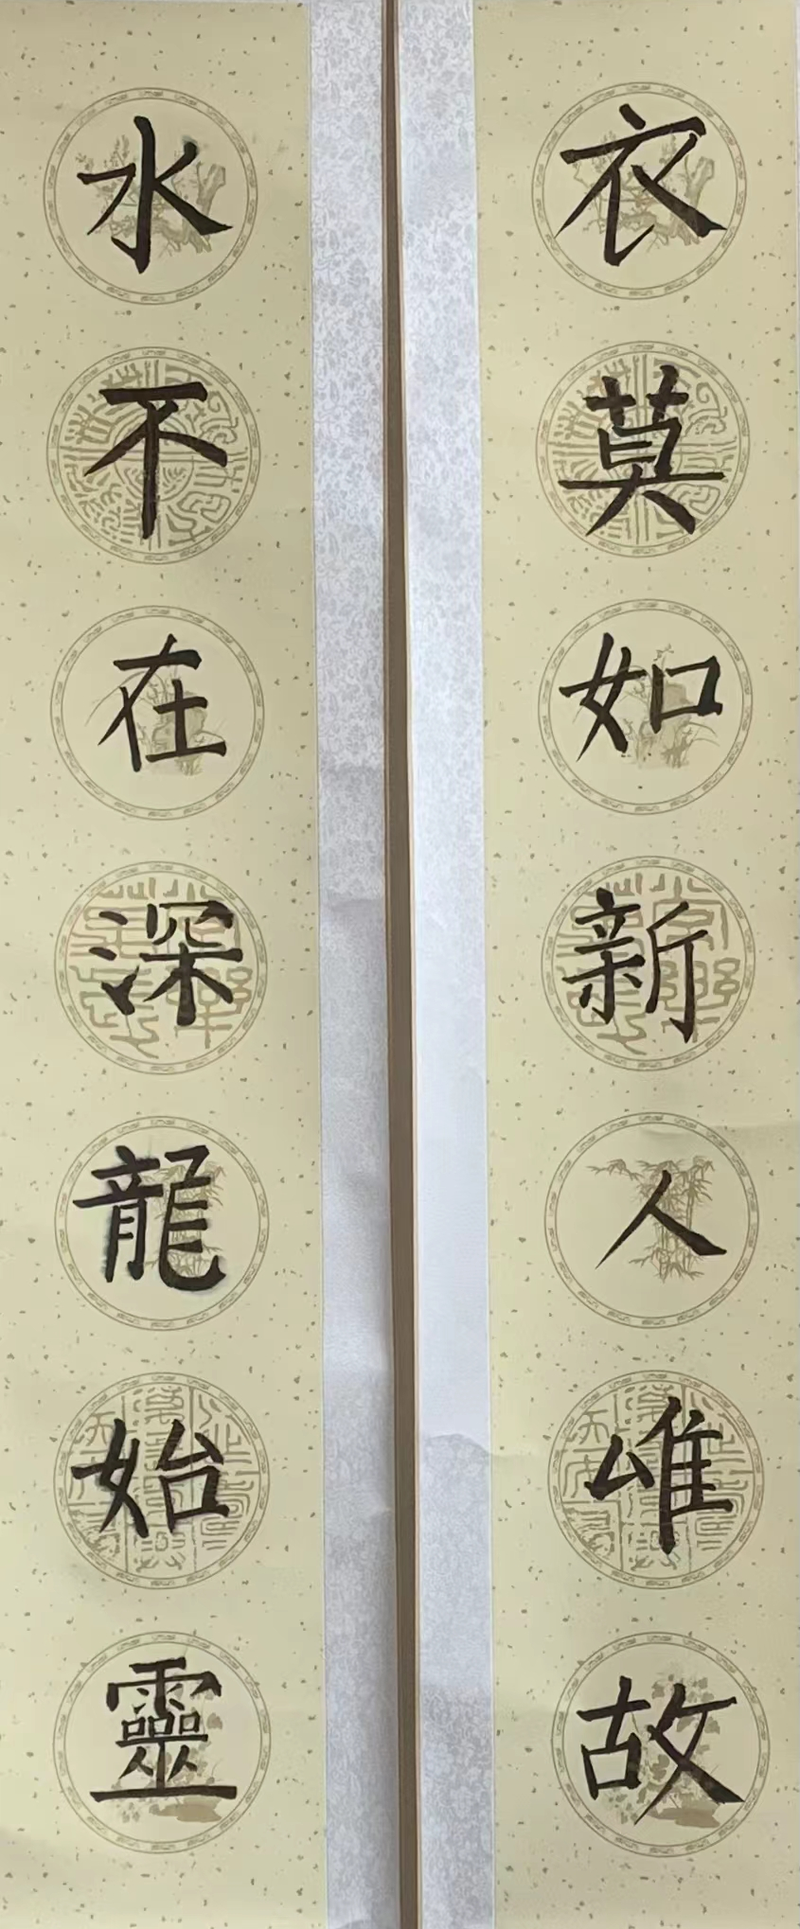 衣莫如新人唯故
水不在深龍始靈